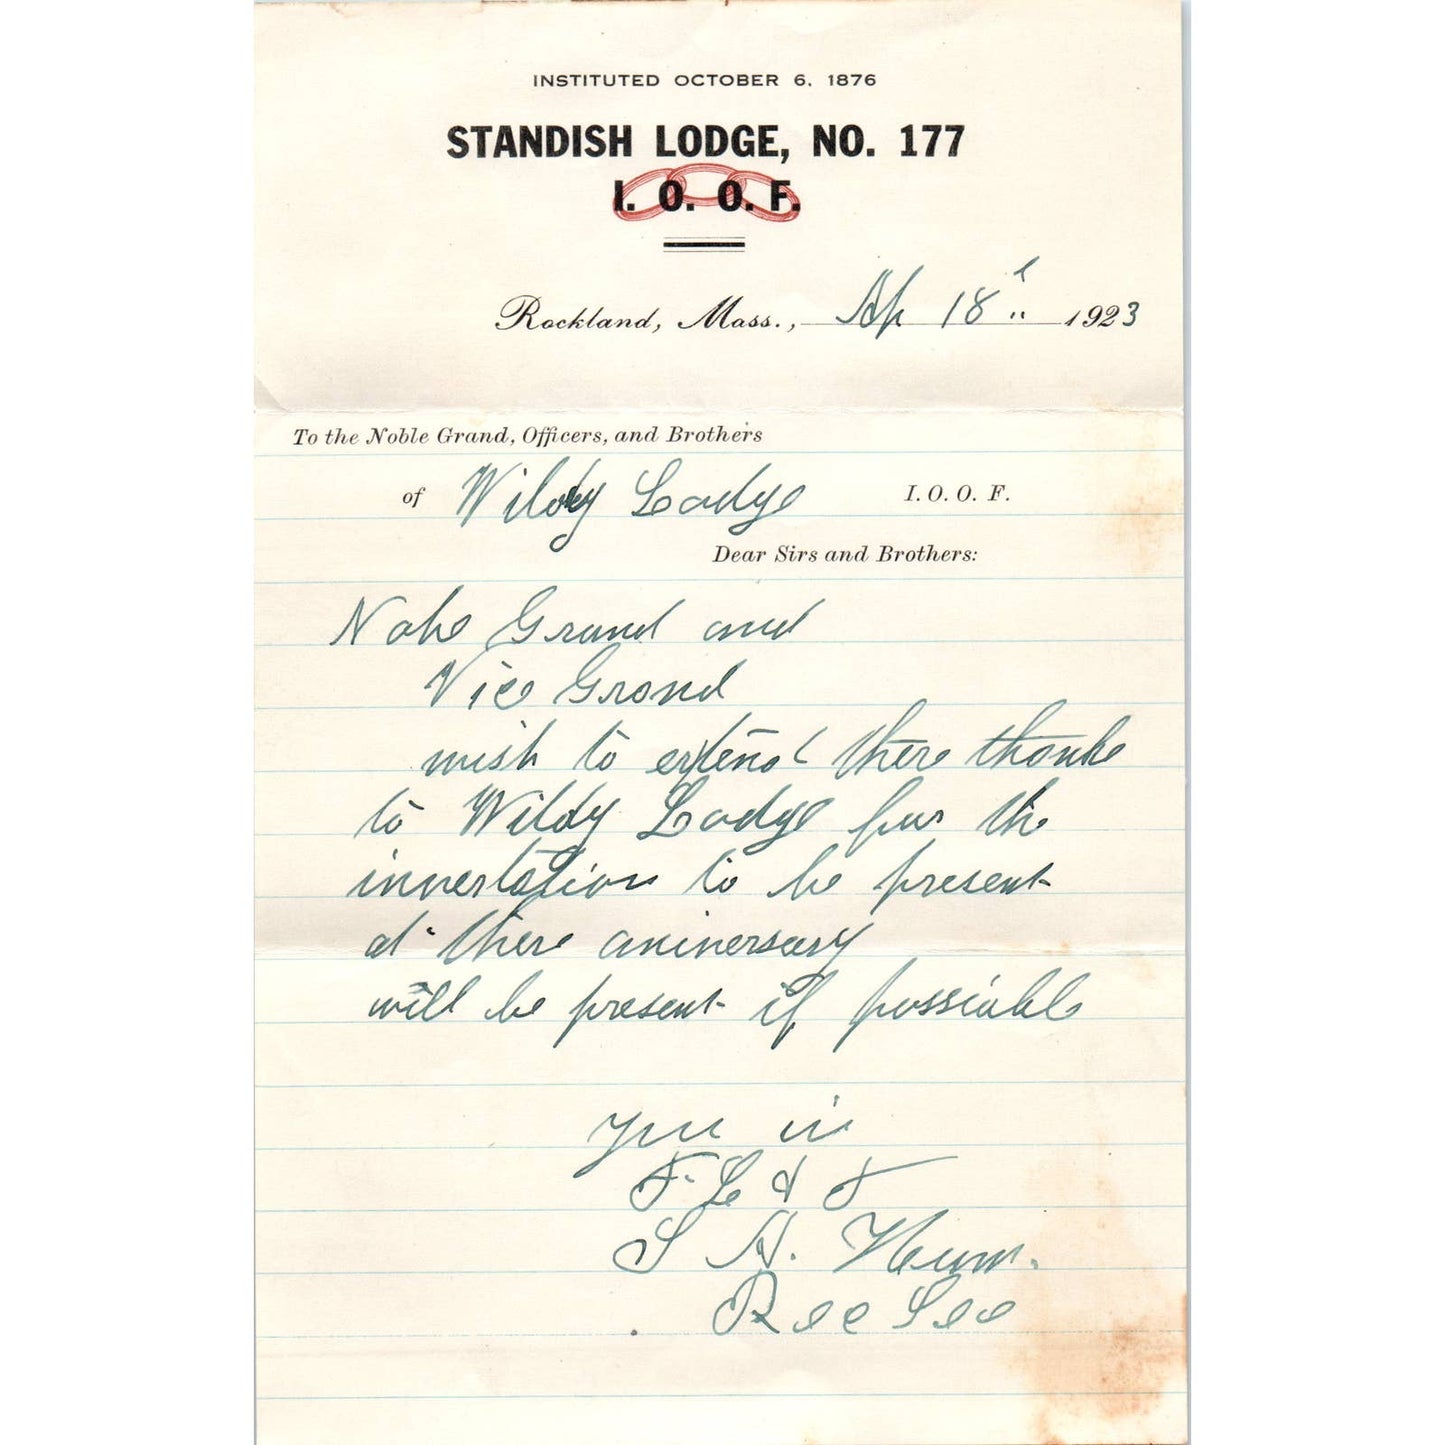 INSTITUTED OCTOBER 6, 1876
STANDISH LODGE, NO. 177
I. O. O. F.
Rockland, Mass., Ap 18 1923
To the Noble Grand, Officers, and Brothers
of Wildy Lodge I. O. O. F.
Dear Sirs and Brothers:
Noble Grand and
Vice Grand
wish to extend there thanks
to Wildy Lodge for the
invertation to be present
at there aniversary
will be present if possiable
in
F. L & T
S. H.
Rec Sec